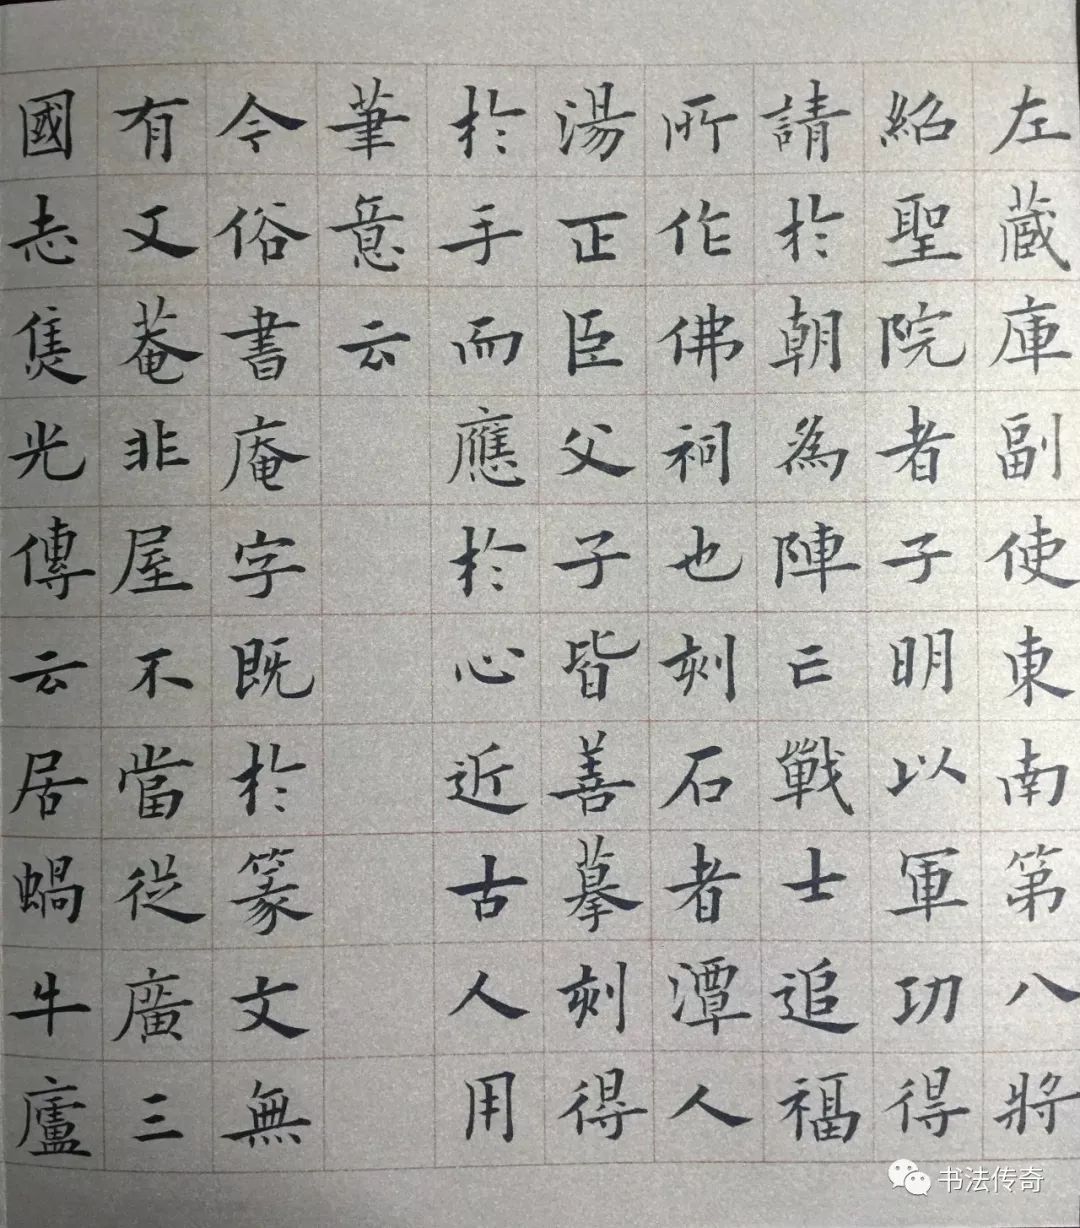 左蔵庫副使東南第八將
紹聖院者子明以軍功得
請於朝為陣亡戰士追福
所作佛祠也刻石者潭人
湯正臣父子皆善摹刻得
於手而應於心近古人用
筆意云
令俗書庵字既於篆文無
有又菴非屋不當從廣三
國志焦光傳云居蝸牛廬
书法传奇